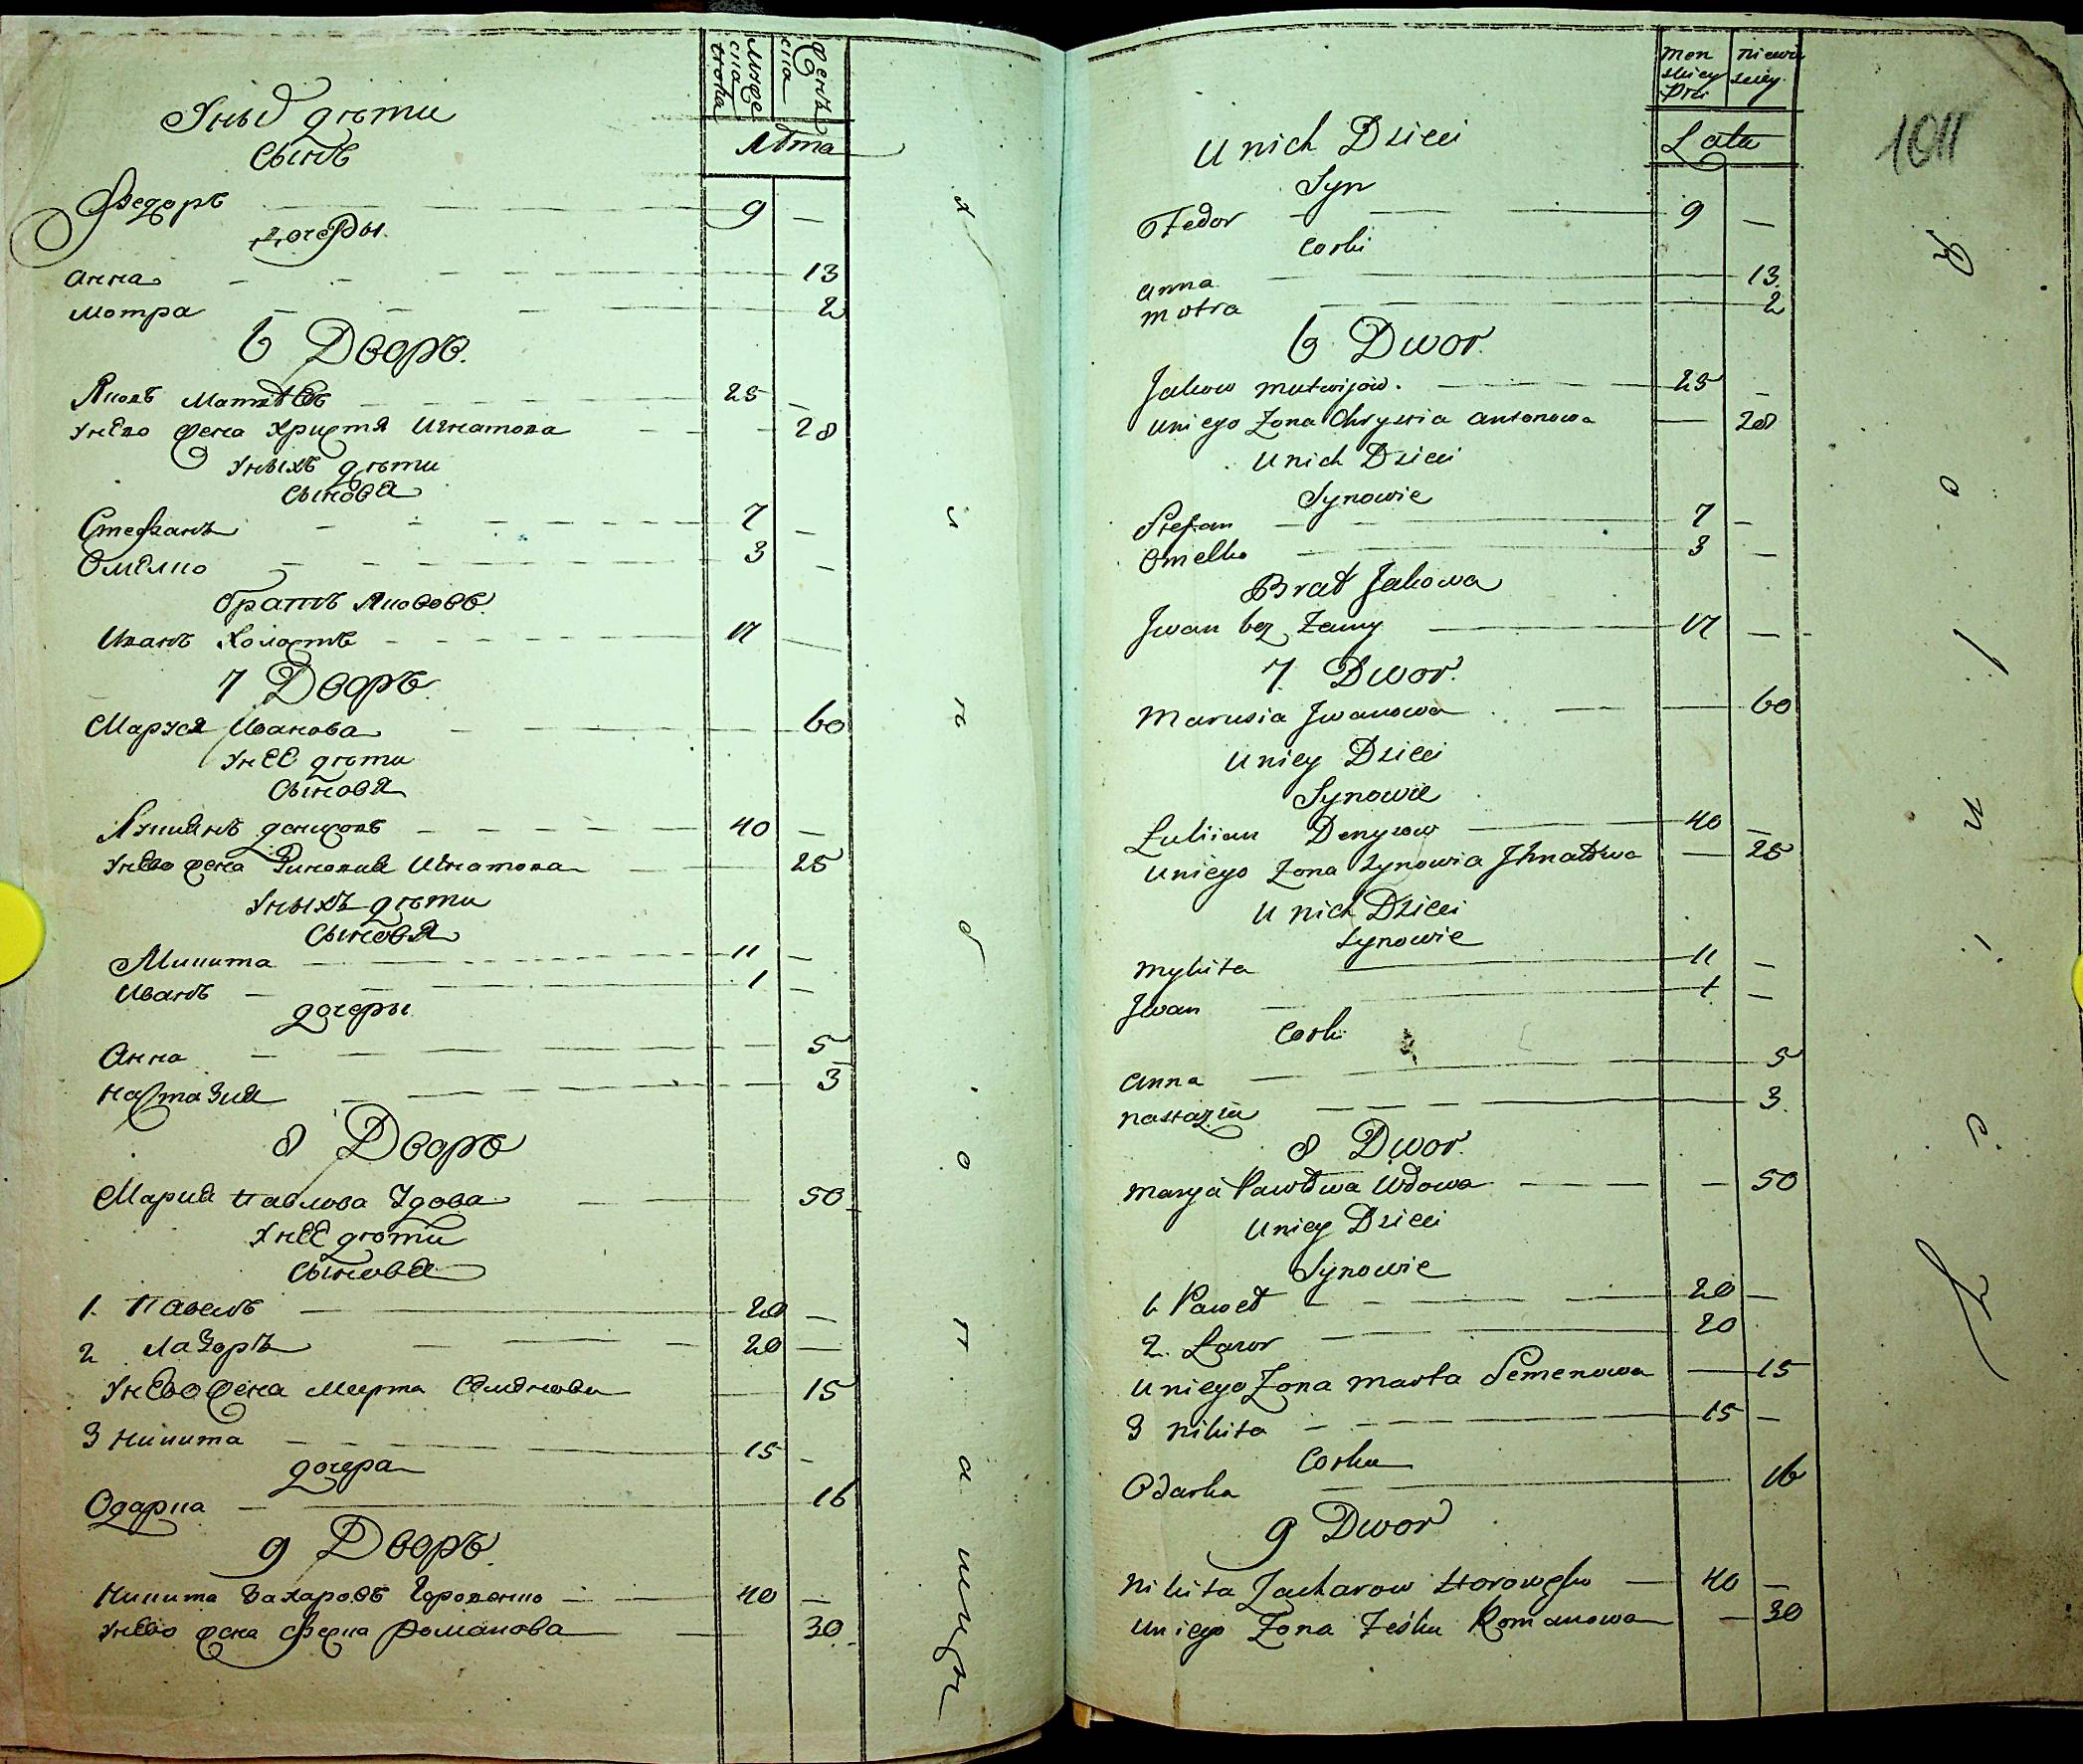 Мужеска
Женска
Лѣта
У ныхъ дѣти
Сынъ
Федоръ 9 —
дочеры
Анна 13
Мотра 2
6 Дворъ.
Яковъ Матвѣевъ 25 —
У него жена Христя Игнатова 28
У ныхъ дѣти
Сыновя
Стефанъ 7 —
Омелко 3 —
братъ Якововъ
Иванъ Холостъ 17 —
7 Дворъ
Маруся Иванова 60
У нее дѣти
Сыновя
Лукиянъ Денисовъ 40 —
У него жена Зиновия Игнатова 25
У ныхъ дѣти
Сыновя
Микита 11 —
Иванъ 1 —
дочеры
Анна 5
Настазия 3
8 Дворъ
Мария Павлова Удова 50
У нее дѣти
Сыновя
1. Павелъ 20 —
2 Лазоръ 20 —
У него жена Марта Семенова 15
3 Никита 15 —
дочера
Одарка 16
9 Дворъ.
Никита Захаровъ Горовенко 40 —
У него жена Феска Романова 30
Lata
1011
U nich Dzieci
Syn
Fedor 9 —
Corki
Anna 13
Motra 2
6 Dwor.
Jakow Matwijow. 25 —
U niego Zona Chrystia Antonowa 28
U nich Dzieci
Synowie
Stefan 7 —
Omelko 3 —
Brat Jakowa
Jwan bez Zenny 17 —
7. Dwor.
Marusia Jwanowa 60
U niey Dzieci
Synowie
Łukiian Denysow 40 —
U niego Zona Zynowia Jhnatowa 25
U nich Dzieci
Synowie
Mykita 11 —
Jwan 1 —
Corki
Anna 5
Nastazia 3.
8 Dwor.
Marya Pawłowa Wdowa 50
U niey Dzieci
Synowie
1 Paweł 20 —
2. Łazor 20
U niego Zona Marta Semenowa 15
3 Nikita 15 —
Corka
Odarka 16
9 Dwor
Nikita Zacharow Horowenko 40 —
U niego Zona Feśka Romanowa 30